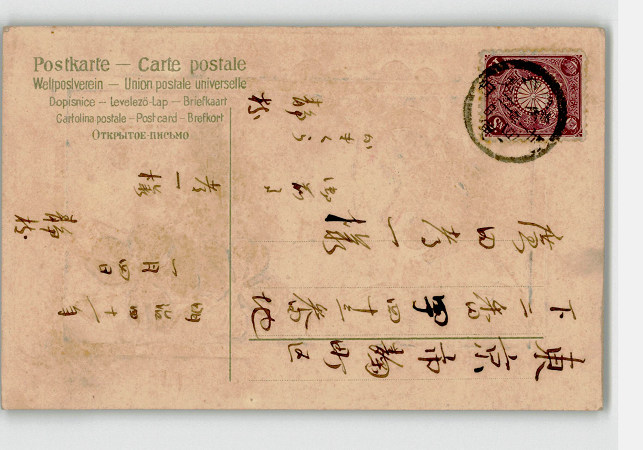 Postkarte — Carte postale
Weltpostverein — Union postale universelle
Dopisnice — Levelező-Lap — Briefkaart
Cartolina postale — Post card — Brefkort
Открытое письмо
東京市麹町区
下二番町四十三番地
田孝一様
かまくら
静枝
明治四十一年
一月四日
静枝
孝一様